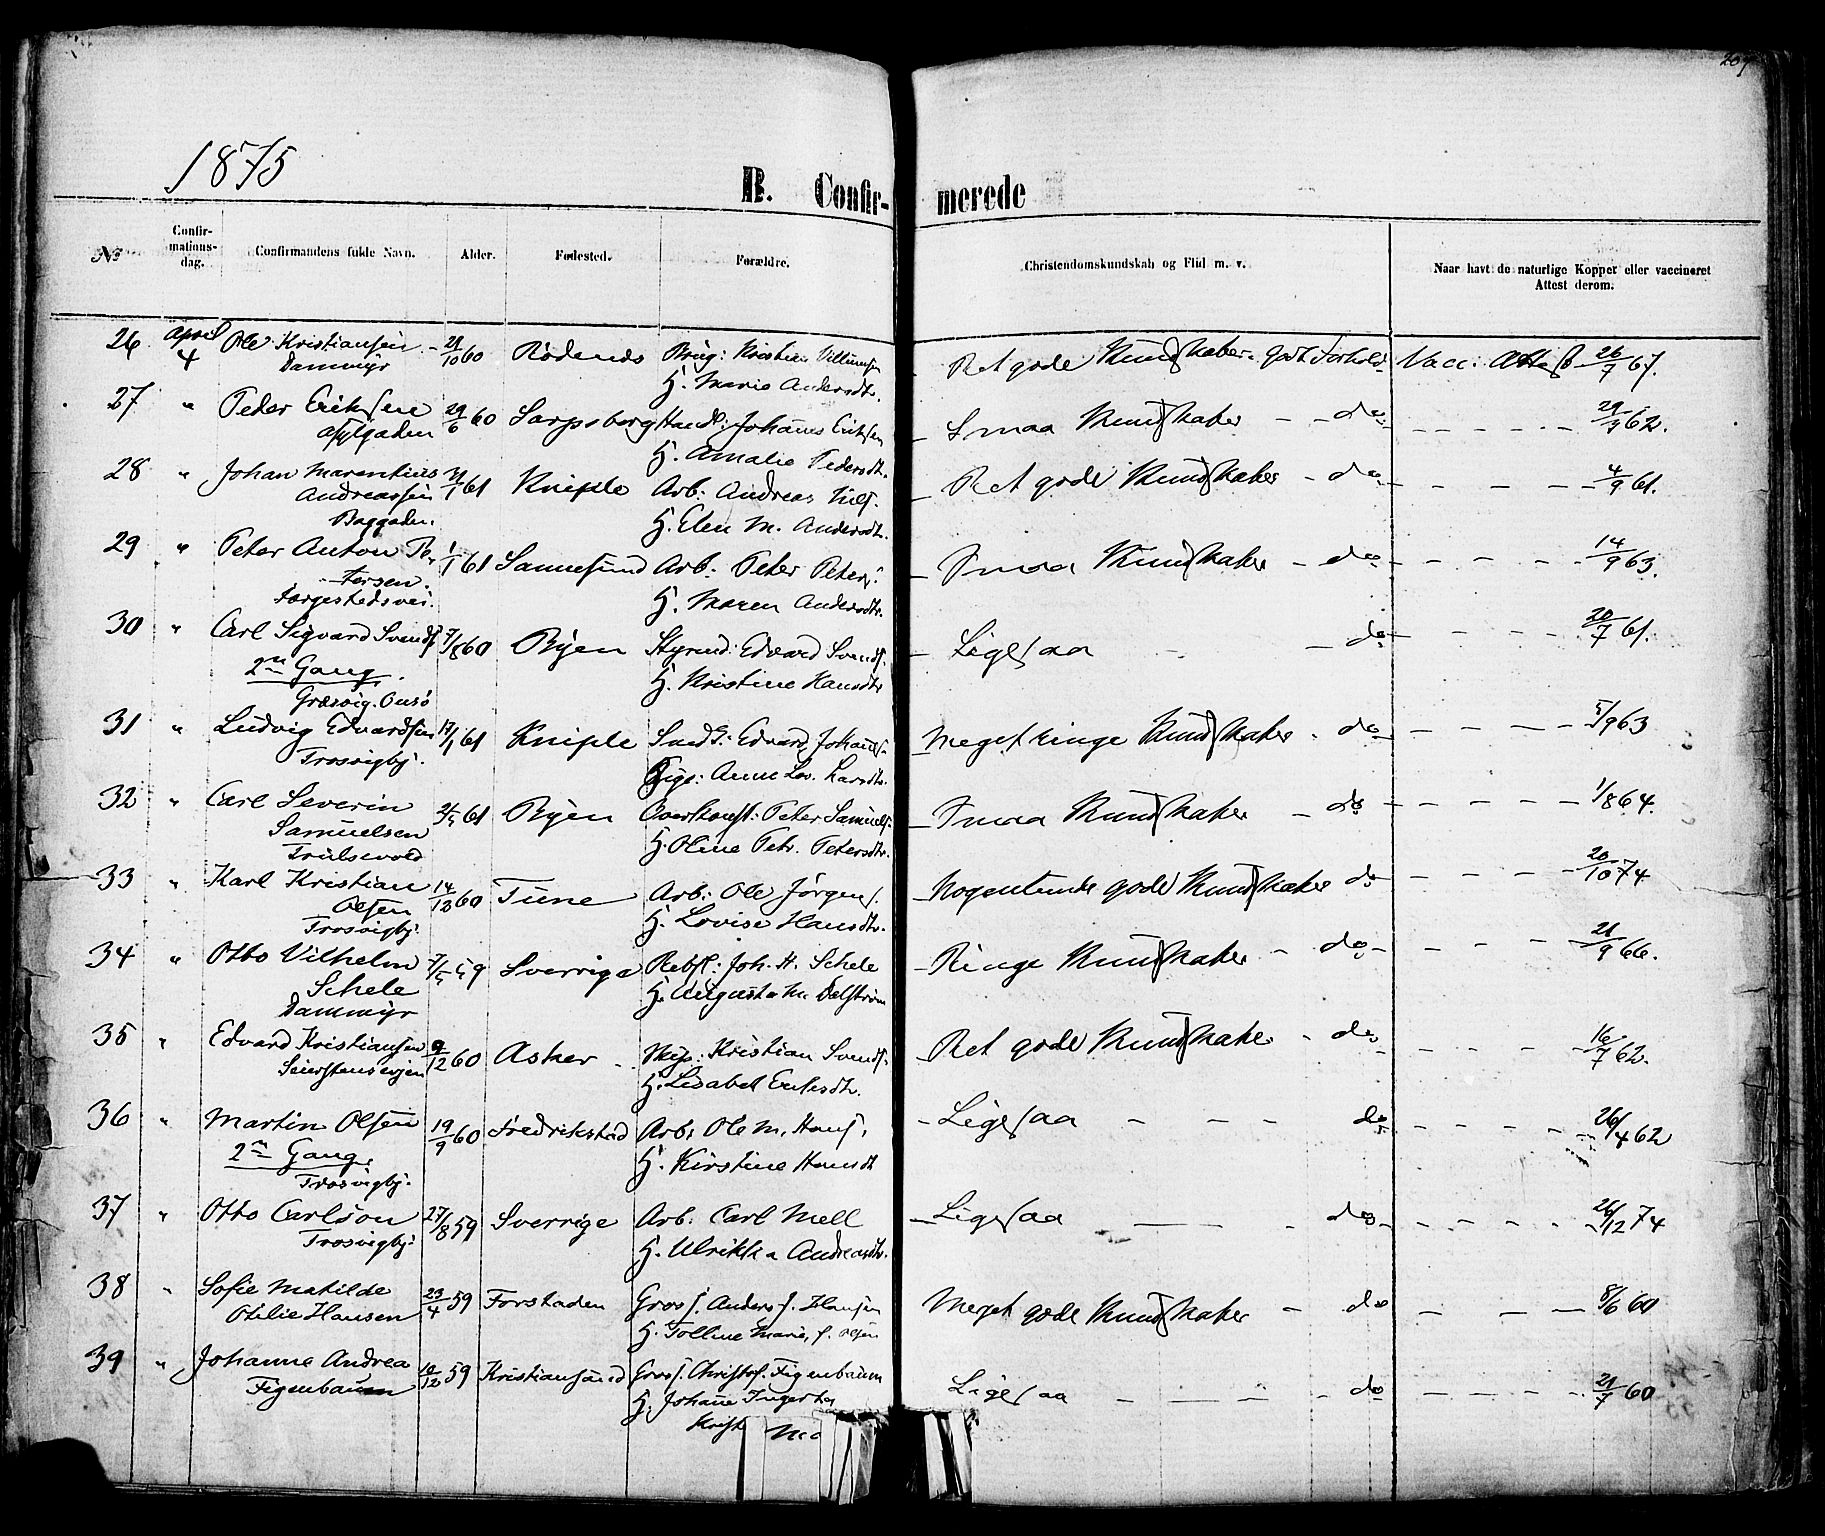 1875
B. Confirmerede
No
Confirmationsdag.
Confirmandens fulde Navn.
Alder.
Fødested.
Forældre.
Christendomskundskab og Flid m. v.
Naar havt de naturlige Kopper eller vaccineret
Attest derom.
26 April 4 Ole Kristiansen 60 Rødenæs Brug: Kristian Ret gode Kundskaber godt Forhold Vacc: Attest 26/7 67.
Dammyr H. Marie Andersdt.
27 " Peder Eriksen 29/6 60 Sarpsborg Handl: Johannes Eriksen Smaa Kundskaber - - do 62.
Asylgaden H. Amalie Pedersdt.
28 " Johan Marentius 61 Kniple Arb: Andreas Nils. Ret gode Kundskaber - do 4/9 61.
Andreassen H. Elen M. Andersdt.
Baggaden.
29 " Peter Anton Pe- 1/1 61 Sannesund Arb: Peter Peters. Smaa Kundskaber - do 14/9 63.
tersen. H. Maren Andersdt.
Færgestedsvei.
30 " Carl Sigvard Svends 7/8 60 Byen Styrmd: Edvard Svends. Ligesaa - do 20/7 61.
2n Gang. H. Kristine Hansdt
Græsvig. Onsø
31 " Ludvig Edvardsen 17/1 61 Kniple Smed: Edvard Johans. Meget ringe Kundskaber - do 5/9 63
Trosvigbj. Pige: Anne Lov. Larsdt.
32 " Carl Severin 61 Byen Peter Samuels. Smaa Kundskaber - do 1/8 64.
Samuelsen H. Oline Petr. Petersdt.
Trulsevold
33 " Karl Kristian 14/12 60 Tune Arb: Ole Jørgens. Nogenlunde gode Kundskaber do 20/10 74.
Olsen H. Lovise Hansdt.
Trosvigbj.
34 " Otto Vilhelm 7/5 59 Sverrige Rebsl: Joh. H. Schele Ringe Kundskaber - do 21/9 66.
Schele H. Augusta M. Dalstrøm
Dammyr
35 " Edvard Kristiansen 9/12 60 Asker Skip: Kristian Svends. Ret gode Kundskaber - do 16/7 62.
H. Lisabet Eriksdt.
36 " Martin Olsen 19/9 60 Fredrikstad Arb: Ole M. Hans. Ligesaa - - - do 26/4 62
2n Gang. H. Kirstine Hansdt
Trosvigbj.
37 " Otto Carlson 27/8 59 Sverrige Arb: Carl Mell Ligesaa - - - do 26/12 74
Trosvigbj. H. Ulrikka Andreasdt.
38 " Sofie Matilde 23/4 59 Forstaden Gross. Anders J. Hansen Meget gode Kundskaber - do 8/6 60
Otilie Hansen H. Tolline Marie, f. Olsen
39 " Johanne Andrea 59 Kristiansund Gross. Christof. Figenbaum Ligesaa - - - do 21/7 60
Figenbaum H. Johane